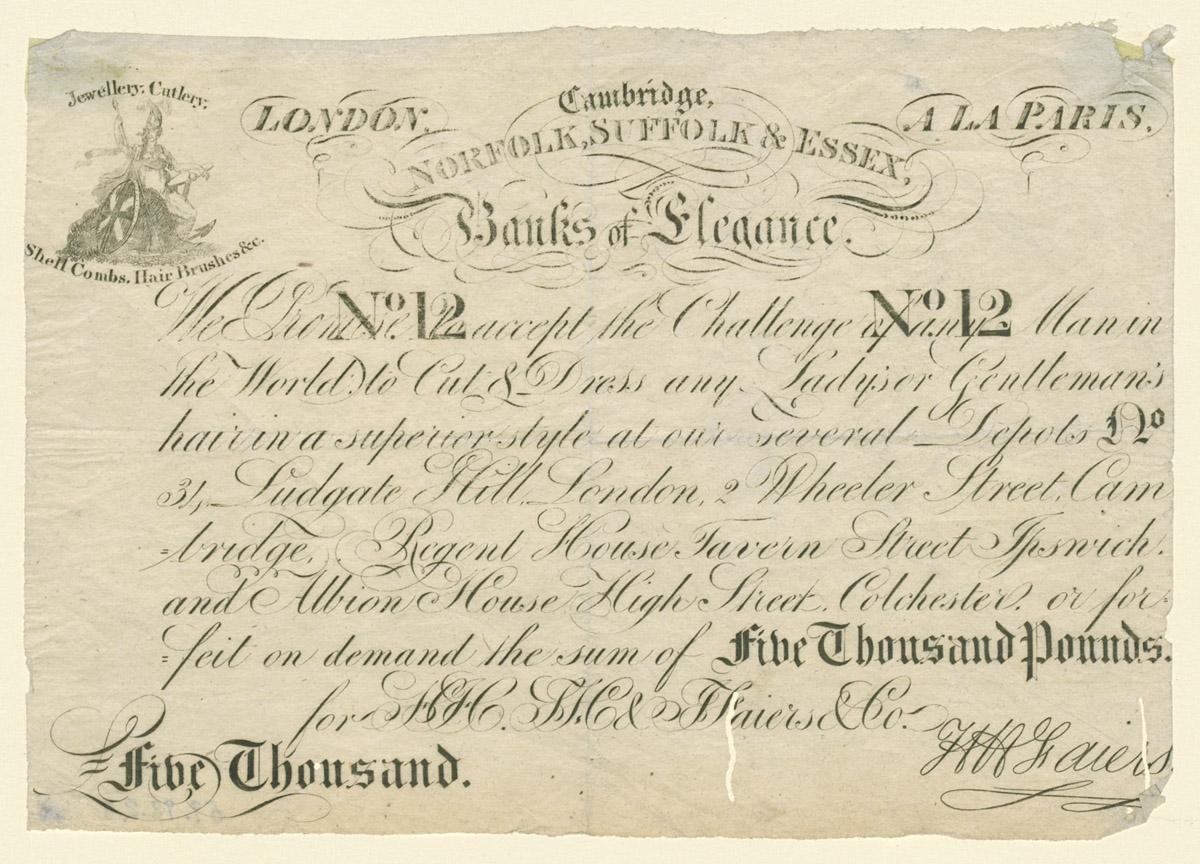 Jewellery, Cutlery,
Shell Combs, Hair Brushes &c.
LONDON.
Cambridge,
NORFOLK, SUFFOLK & ESSEX,
A LA PARIS.
Banks of Elegance.
No. 12 No. 12
We Promise to accept the Challenge of any Man in
the World to Cut & Dress any Lady's or Gentleman's
hair in a superior style at our several Depots No
31, Ludgate Hill, London, 2 Wheeler Street, Cam
=bridge, Regent House Tavern Street Ipswich.
and Albion House High Street, Colchester, or for
=feit on demand the sum of Five Thousand Pounds.
for Faiers & Co.
Faiers
Five Thousand.